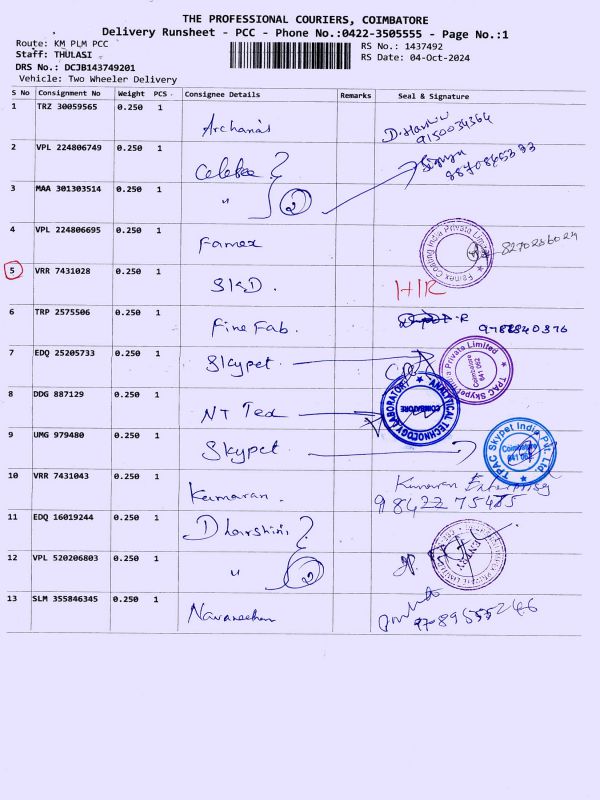 THE PROFESSIONAL COURIERS, COIMBATORE
Delivery Runsheet - PCC - Phone No.:0422-3505555 - Page No.:1
Route: KM PLM PCC
RS No.: 1437492
Staff: THULASI
RS Date: 04-Oct-2024
DRS No.: DCJB143749201
Vehicle: Two Wheeler Delivery
S No Consignment No Weight PCS Consignee Details Remarks Seal & Signature
1 TRZ 30059565 0.250 1 Archana's
9150034364
2 VPL 224806749 0.250 1
3 MAA 301303514 0.250 1 " 2
4 VPL 224806695 0.250 1 Famex 8270286024
Famex Coting India Private Limited
5 VRR 7431028 0.250 1 SKD. HIR
6 TRP 2575506 0.250 1 Fine Fab.
7 EDQ 25205733 0.250 1 Skypet
TPAC Skypet India Private Limited Coimbatore 641 062
8 DDG 887129 0.250 1 NT Tex
ANALYTICAL TECHNOLOGY LABORATORY COIMBATORE
9 UMG 979480 0.250 1 Skypet
TPAC Skypet India Pvt. Ltd. Coimbatore 641 062
10 VRR 7431043 0.250 1 Kumaran. Kumaran Enterprises
98422 75475
11 EDQ 16019244 0.250 1 Dharshini
12 VPL 520206803 0.250 1 " 2
ENTRY
13 SLM 355846345 0.250 1 Navaneethan
9789555246